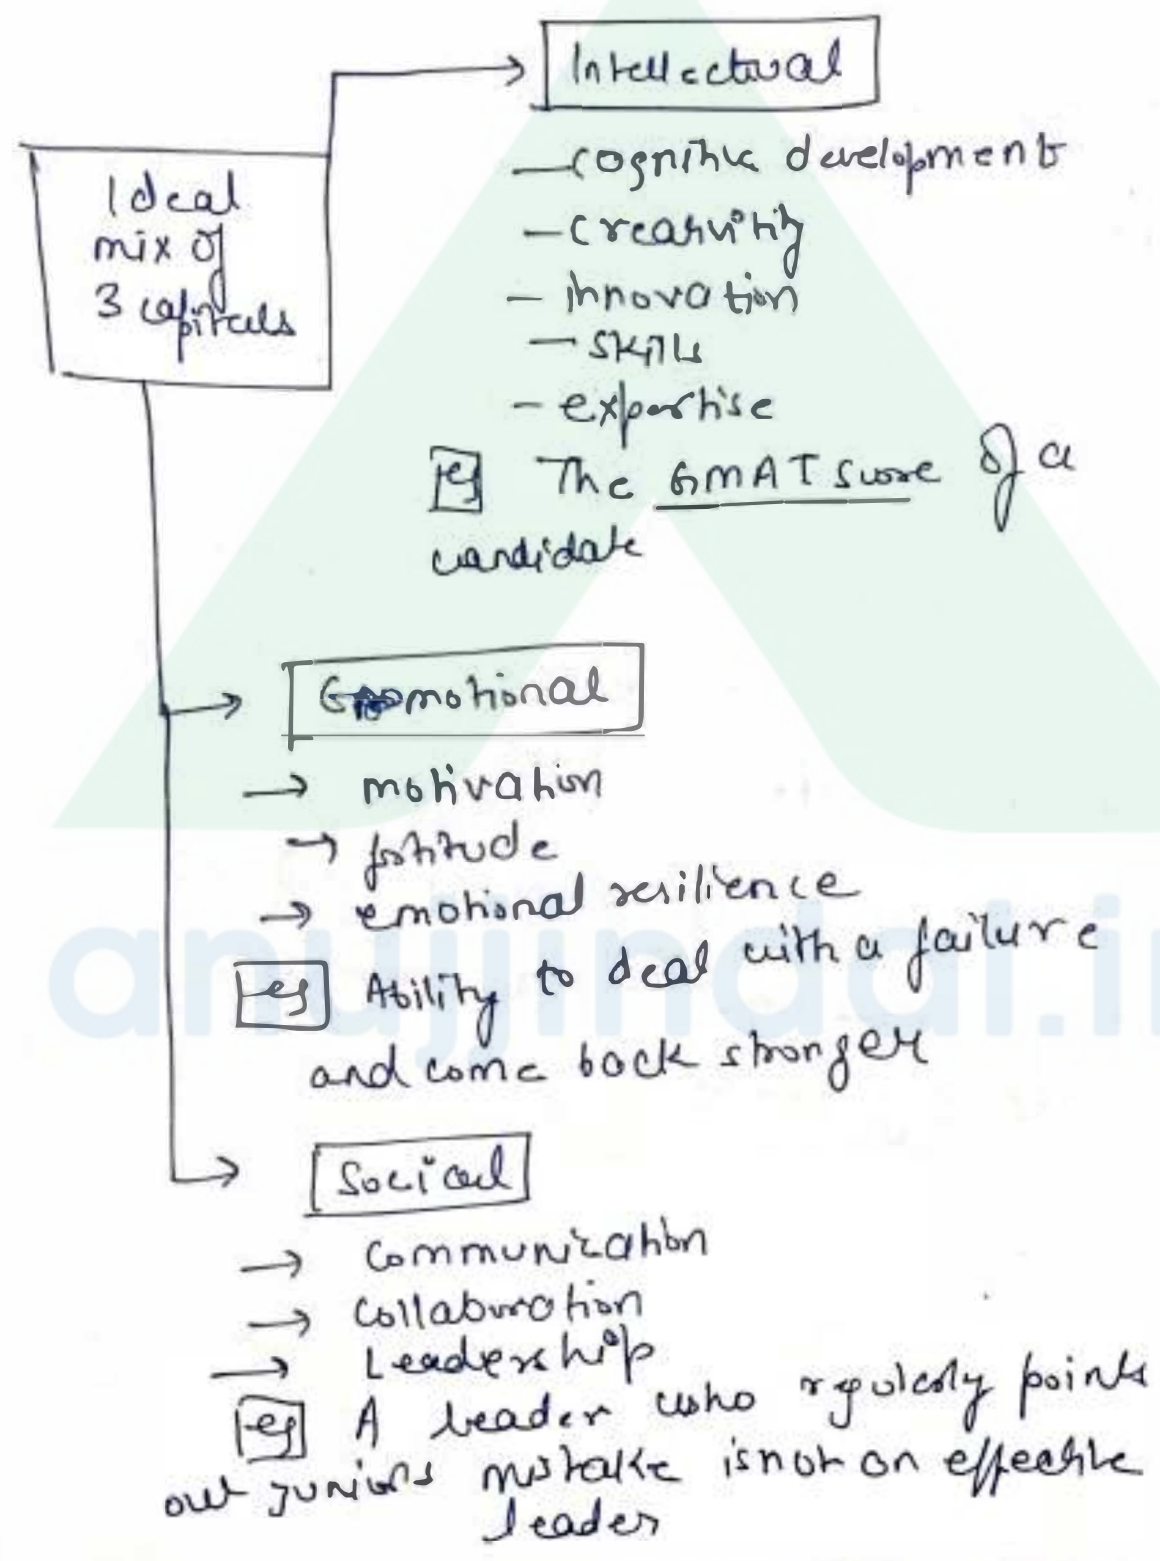 Intellectual
Ideal
mix of
3 capitals
— cognitive development
— creativity
— innovation
— skills
— expertise
eg The GMAT Score of a
candidate
Emotional
→ motivation
→ fortitude
→ emotional resilience
eg Ability to deal with a failure
and come back stronger
Social
→ Communication
→ Collaboration
→ Leadership
eg A leader who regularly points
out juniors mistake is not an effective
leader
anujjindal.in